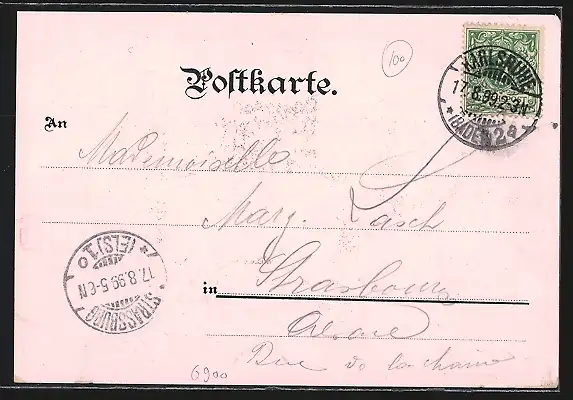 100
Postkarte.
KARLSRUHE
17.8.99.2-3N.
* (BADEN) 2a *
An
Mademoiselle
Marg. Lasch
in Strasbourg
Alsace
Rue de la chaine
* (ELS) 1 o
17.8.99.5-6N
STRASSBURG
6900